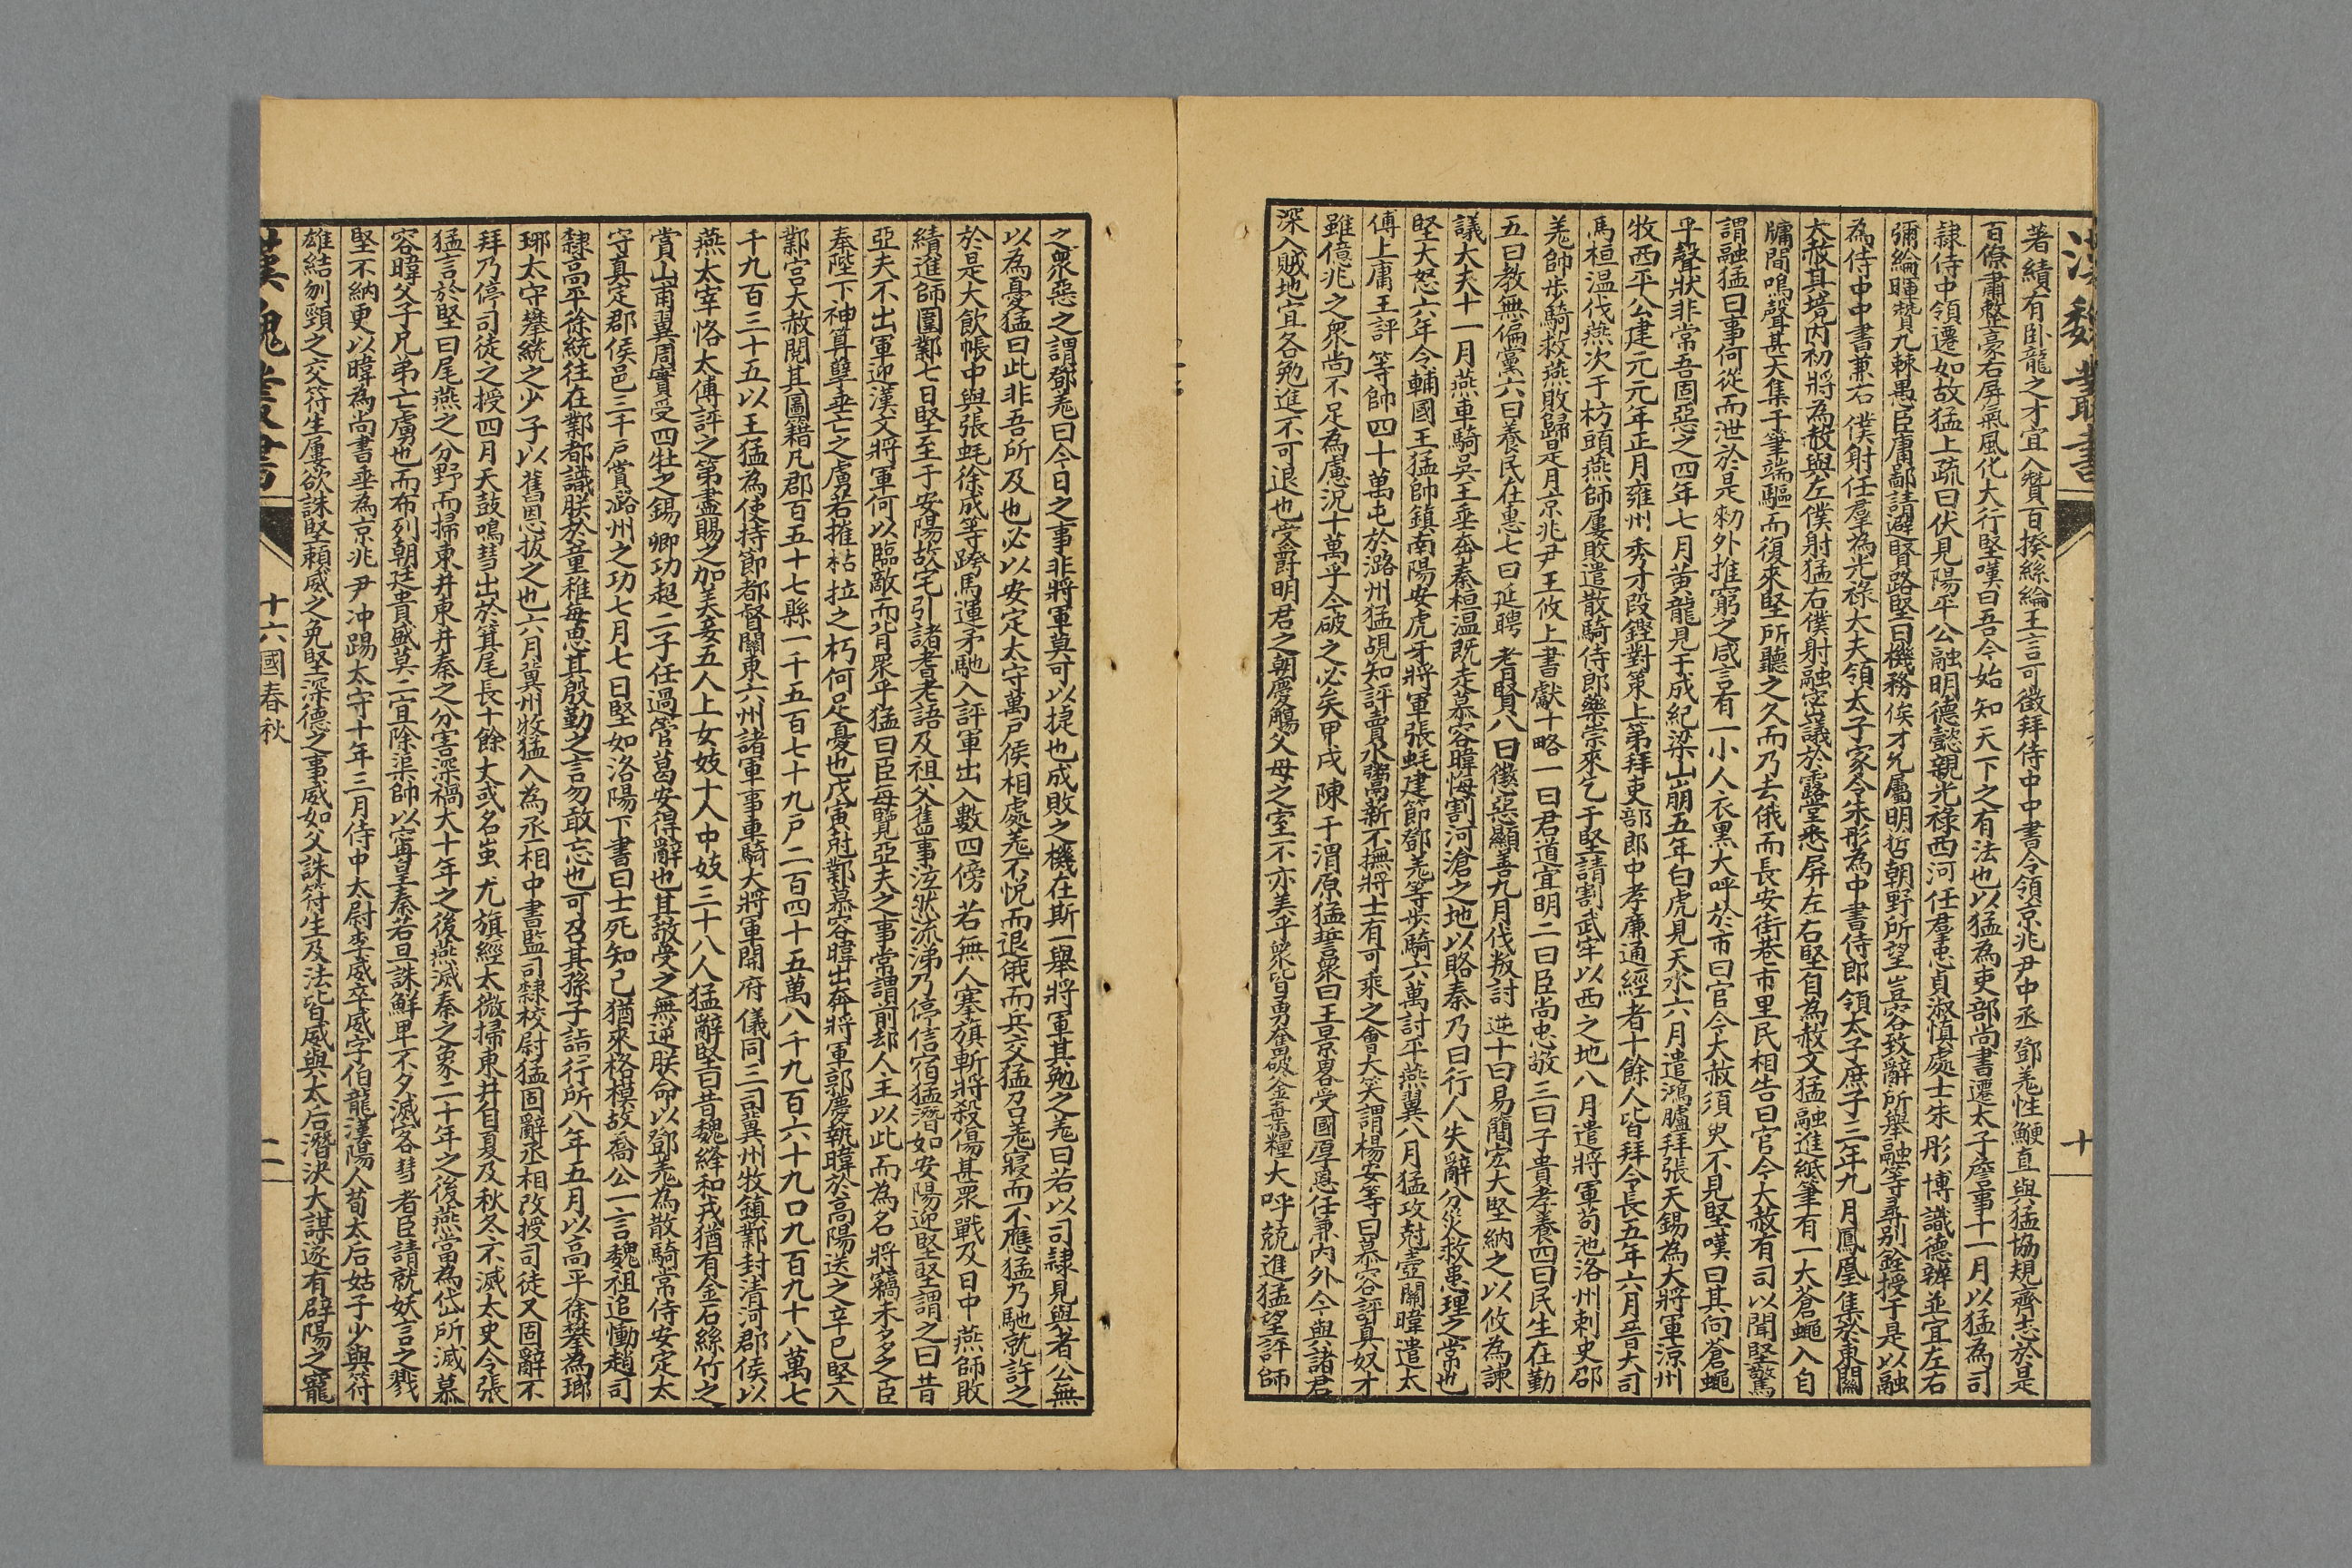 漢魏叢書
十
著績有卧龍之才宜入贊百揆絲綸王言可徵拜侍中中書令領京兆尹中丞鄧羌性鯁直與猛協規齊志於是
百僚肅整豪右屏氣風化大行堅嘆曰吾今始知天下之有法也以猛為吏部尚書遷太子詹事十一月以猛為司
隷侍中領選如故猛上疏曰伏見陽平公融明德懿親光祿西河任羣忠貞淑慎處士朱彤博識德辯並宜左右
彌綸暉贊九棘愚臣庸鄙請避賢路堅曰機務俟才允屬明哲朝野所望豈容致辭所舉融等尋别銓授于是以融
為侍中中書兼右僕射任羣為光祿大夫領太子家令朱彤為中書侍郎領太子庶子三年九月鳳凰集於東闕
大赦其境内初將為赦與左僕射猛右僕射融密議於露堂悉屏左右堅自為赦文猛融進紙筆有一大蒼蠅入自
牖間鳴聲甚大集于筆端驅而復來堅所聽之久而乃去俄而長安街巷市里民相告曰官今大赦有司以聞堅驚
謂融猛曰事何從而泄於是勑外推窮之咸言有一小人衣黑大呼於市曰官今大赦須臾不見堅嘆曰其向蒼蠅
乎聲狀非常吾固惡之四年七月黄龍見于成紀梁山崩五年白虎見天水六月遣鴻臚拜張天錫為大將軍涼州
牧西平公建元元年正月雍州秀才段鏗對策上第拜吏部郎中孝廉通經者十餘人皆拜令長五年六月晉大司
馬桓温伐燕次于枋頭燕師屢敗遣散騎侍郎樂崇來乞于堅請割武牢以西之地八月遣將軍苟池洛州刺史邵
羌帥步騎救燕敗歸是月京兆尹王攸上書獻十略一曰君道宜明二曰臣尚忠敬三曰子貴孝養四曰民生在勤
五曰教無偏黨六曰養民在惠七曰延聘耆賢八曰懲惡顯善九月伐叛討逆十曰易簡宏大堅納之以攸為諫
議大夫十一月燕車騎吳王垂奔秦桓温既走慕容暐悔割河滄之地以賂秦乃曰行人失辭分災救患理之常也
堅大怒六年令輔國王猛帥鎮南陽安虎牙將軍張蚝建節鄧羌等步騎六萬討平燕翼八月猛攻尅壺關暐遣太
傅上庸王評等帥四十萬屯於潞州猛覘知評賣水鬻薪不撫將士有可乘之會大笑謂楊安等曰慕容評真奴才
雖億兆之衆尚不足為慮況十萬乎今破之必矣甲戌陳于渭原猛誓衆曰王景畧受國厚恩任兼内外今與諸君
深入賊地宜各勉進不可退也受爵明君之朝慶觴父母之室不亦美乎衆皆勇奮破釜棄糧大呼競進猛望評師
之衆惡之謂鄧羌曰今日之事非將軍莫可以捷也成敗之機在斯一舉將軍其勉之羌曰若以司隷見與者公無
以為憂猛曰此非吾所及也必以安定太守萬戸侯相處羌不悦而退俄而兵交猛召羌寢而不應猛乃馳就許之
於是大飲帳中與張蚝徐成等跨馬運矛馳入評軍出入數四傍若無人搴旗斬將殺傷甚衆戰及日中燕師敗
績進師圍鄴七日堅至于安陽故宅引諸耆老語及祖父舊事泣然流涕乃停信宿猛潛如安陽迎堅堅謂之曰昔
亞夫不出軍迎漢文將軍何以臨敵而背衆乎猛曰臣每覽亞夫之事常謂前却人主以此而為名將竊未多之臣
奉陛下神算擊垂亡之虜若摧枯拉之朽何足憂也戊寅尅鄴慕容暐出奔將軍郭慶執暐於高陽送之辛巳堅入
鄴宫大赦閲其圖籍凡郡百五十七縣一千五百七十九戸二百四十五萬八千九百六十九口九百九十八萬七
千九百三十五以王猛為使持節都督關東六州諸軍事車騎大將軍開府儀同三司冀州牧鎮鄴封清河郡侯以
燕太宰恪太傅評之第盡賜之加美妾五人上女妓十人中妓三十八人猛辭堅曰昔魏絳和戎猶有金石絲竹之
賞山甫翼周實受四牡之錫卿功超二子任過管葛安得辭也其敬受之無逆朕命以鄧羌為散騎常侍安定太
守真定郡侯邑三千戸賞潞州之功七月七日堅如洛陽下書曰士死知己猶來格模故喬公一言魏祖追慟趙司
隸高平徐統往在鄴都識朕於童稚每思其殷勤之言勿敢忘也可召其孫子詣行所八年五月以高平徐攀為瑯
琊太守攀統之少子以舊恩拔之也六月冀州牧猛入為丞相中書監司隸校尉猛固辭丞相改授司徒又固辭不
拜乃停司徒之授四月天鼓鳴彗出於箕尾長十餘丈或名蚩尤旗經太微掃東井自夏及秋冬不滅太史令張
猛言於堅曰尾燕之分野而掃東井東井秦之分害深禍大十年之後燕滅秦之象二十年之後燕當為岱所滅慕
容暐父子兄弟亡虜也而布列朝廷貴盛莫二宜除渠帥以寧皇秦若旦誅鮮卑不夕滅客彗者臣請就妖言之戮
堅不納更以暐為尚書垂為京兆尹沖踢太守十年三月侍中太尉李威卒威字伯龍漢陽人苟太后姑子少與苻
雄結刎頸之交苻生屢欲誅堅賴威之免堅深德之事威如父誅苻生及法皆威與太后潛決大謀逐有辟陽之寵
漢魏叢書
十六國春秋
二